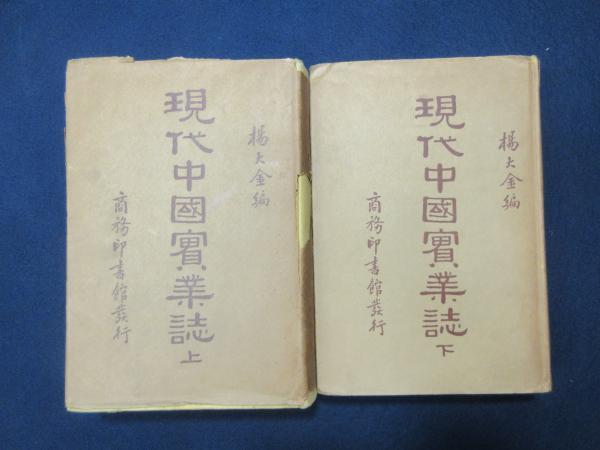 楊大金編
現代中國實業誌
上
商務印書館發行
楊大金編
現代中國實業誌
下
商務印書館發行